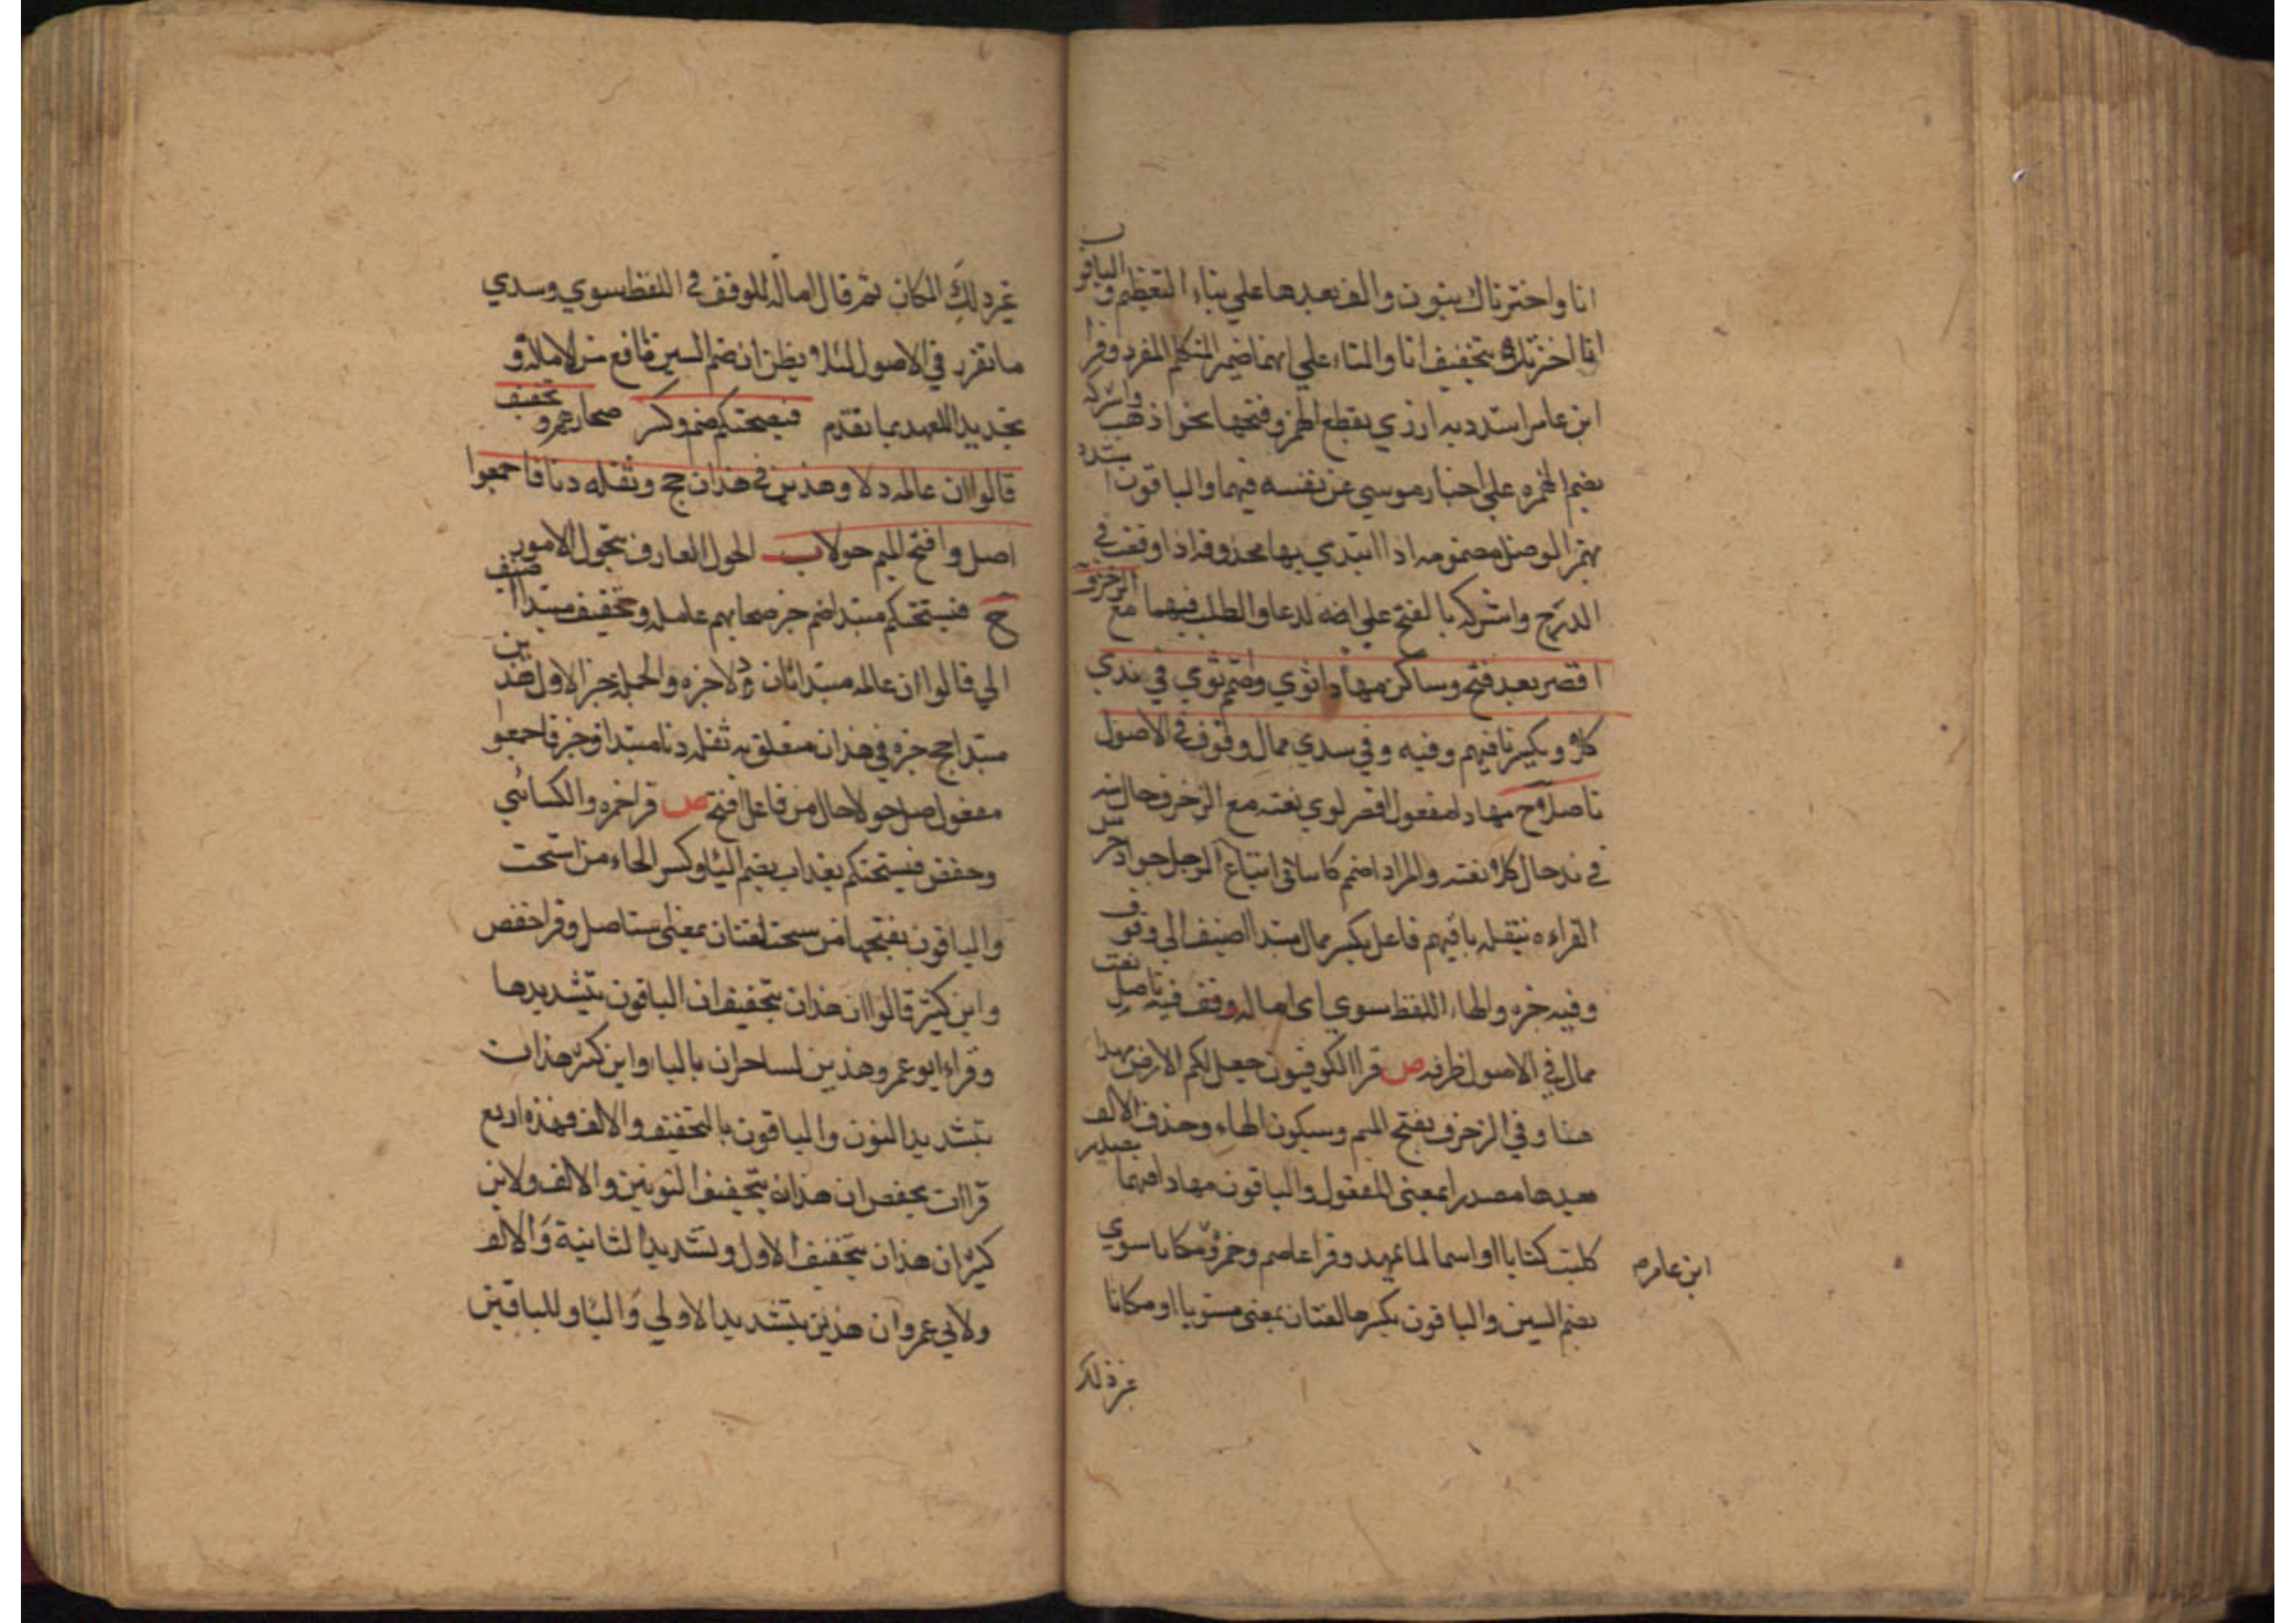 انا واخترناك بنون والف بعدها علي بناء التعظيم والباقون
انا اخترتك بتخفيف انا والتاء علي انهما ضمير المتكلم المفرد وقرا
ابن عامر اشدد به ازري بقطع الهمز وفتحها نحو اذهب واشركه
بضم الهمزه علي اخبار موسي عن نفسه فيهما والباقون اشدد
بهمز الوصل مضمومه اذا ابتدي بها محذوفه اذا وقف في
الدرج واشركه بالفتح علي انه لدعا والطلب فيهما مع الزخرف
اقصر بعد فتح وساكن مهادا ثوي وضم ثوي في ندي
كلا ويكسر نافيهم وفيه وفي سدي ممال وقوف في الاصول
تاصلا ح مهادا مفعول اقصر لوي نعته مع الزخرف حال منه
في ند حال كلا نعته والمراد اضمم كاسائي اتباع الرجل جواد حرس
القراءه بنقله باقيهم فاعل يكسر ممال مبتدا اضيف الي وقوف
وفيه خبره والهاء اللفظ سوي اي اماله وقف فيه تاصل نعت
ممال في الاصول ظرفه ص قرا الكوفيون جعل لكم الارض مهدا
هنا وفي الزخرف بفتح الميم وسكون الهاء وحذف الالف
بعدها مصدرا بمعني المفعول والباقون مهادا فيهما مصدر
كلبت كتابا او اسما لما يمهد وقرا عاصم وحمزة مكانا سوي
ابن عامر
بضم السين والباقون بكسرها لغتان بمعني مستويا او مكانا
غير ذلك
غير ذلك المكان ثم قال امالة الوقف في اللفظ سوي وسدي
ما تقرر في الاصول لئلا يظن ان ضم السين مانع من الامالة و
تجديد اللعهد بما تقدم فيسحتكم ضم وكسر صحابهم وتخفيف
قالوا ان عالمه دلا وهذين في هذان حج وثقله دنا فاجمعوا
اصل وافتح الميم حولا ب الحول العارف بتحول الامور
ح فيسحتكم مبتدا ضم خبر صحابهم عامله وتخفيف مبتدا اضيف
الي قالوا ان عالمه مبتدا ثان دلا خبره والجملة خبر الاول هذين
مبتدا حج خبره في هذان متعلق به ثقله دنا مبتدا وخبر فاجمعوا
مفعول صل حولا حال من فاعل افتح ص قرا حمزه والكسائي
وحفص فيسحتكم بعذاب بضم الياء وكسر الحاء من اسحت
والباقون بفتحها من سحت لغتان بمعني يستاصل وقرا حفص
وابن كثير قالوا ان هذان بتخفيف ان الباقون بتشديدها
وقراء ابو عمرو هذين لساحران بالياء وابن كثير هذان
بتشديد النون والباقون بالتخفيف والالف فهذه اربع
قراات لحفص ان هذان بتخفيف النونين والالف ولابن
كثير ان هذان بتخفيف الاول وتشديد الثانية والالف
ولابي عمرو ان هذين بتشديد الاولي والياء وللباقين